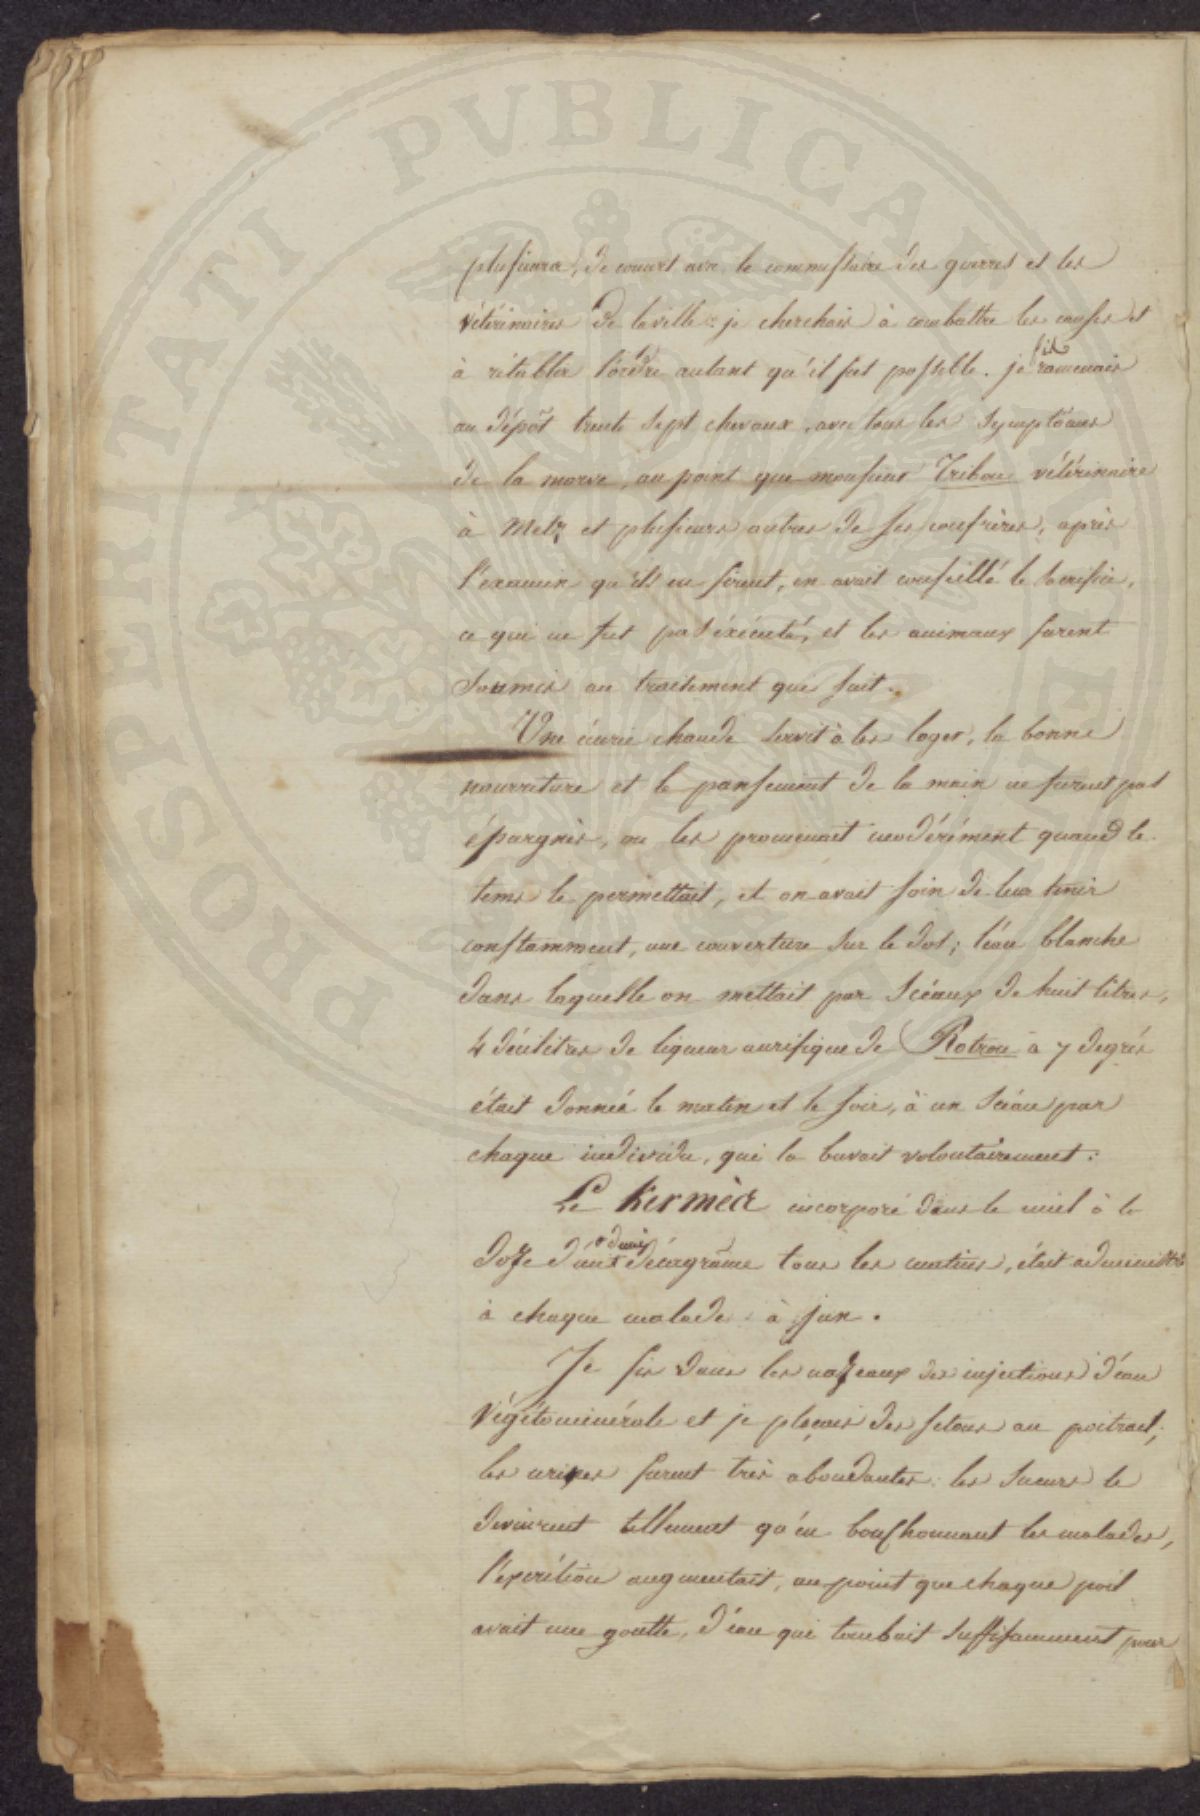 PROSPERITATI PVBLICAE
plusieurs, de concert avec le commissaire des guerres et les
vétérinaires de la ville : je cherchais à combattre les causes et
à rétablir l'ordre autant qu'il fut possible. je fis ramenais
au dépôt trente sept chevaux, avec tous les symptômes
de la morve, au point que monsieur Tribou vétérinaire
à Metz et plusieurs autres de ses confrères, après
l'examen qu'ils en firent, en avait conseillé le sacrifice,
ce qui ne fut pas éxécuté, et les animaux furent
soumis au traitement qui suit.
Une écurie chaude servit à les loger, la bonne
nourriture et le pansement de la main ne furent pas
épargnés, on les promenait modérément quand le
tems le permettait, et on avait soin de leur tenir
constamment, une couverture sur le dos ; l'eau blanche
dans laquelle on mettait par Scéaux de huit litres,
4 décilitres de liqueur aurifique de Rotrou à 7 degrés
était donnée le matin et le soir, à un Scéau par
chaque individu, qui la buvait volontairement :
Le Kermès incorporé dans le miel à la
doze d'un demi décagrame tous les matins, était administré
à chaque malade à jun.
Je fis dans les nazeaux des injections d'eau
végétominérale et je plaçais des setons au poitrail ;
les urines furent très abondantes : les sueurs le
devinrent tellement qu'en bouchonnant les malades,
l'éxcrétion augmentait, au point que chaque poil
avait une goutte, d'eau qui tombait suffisamment pour